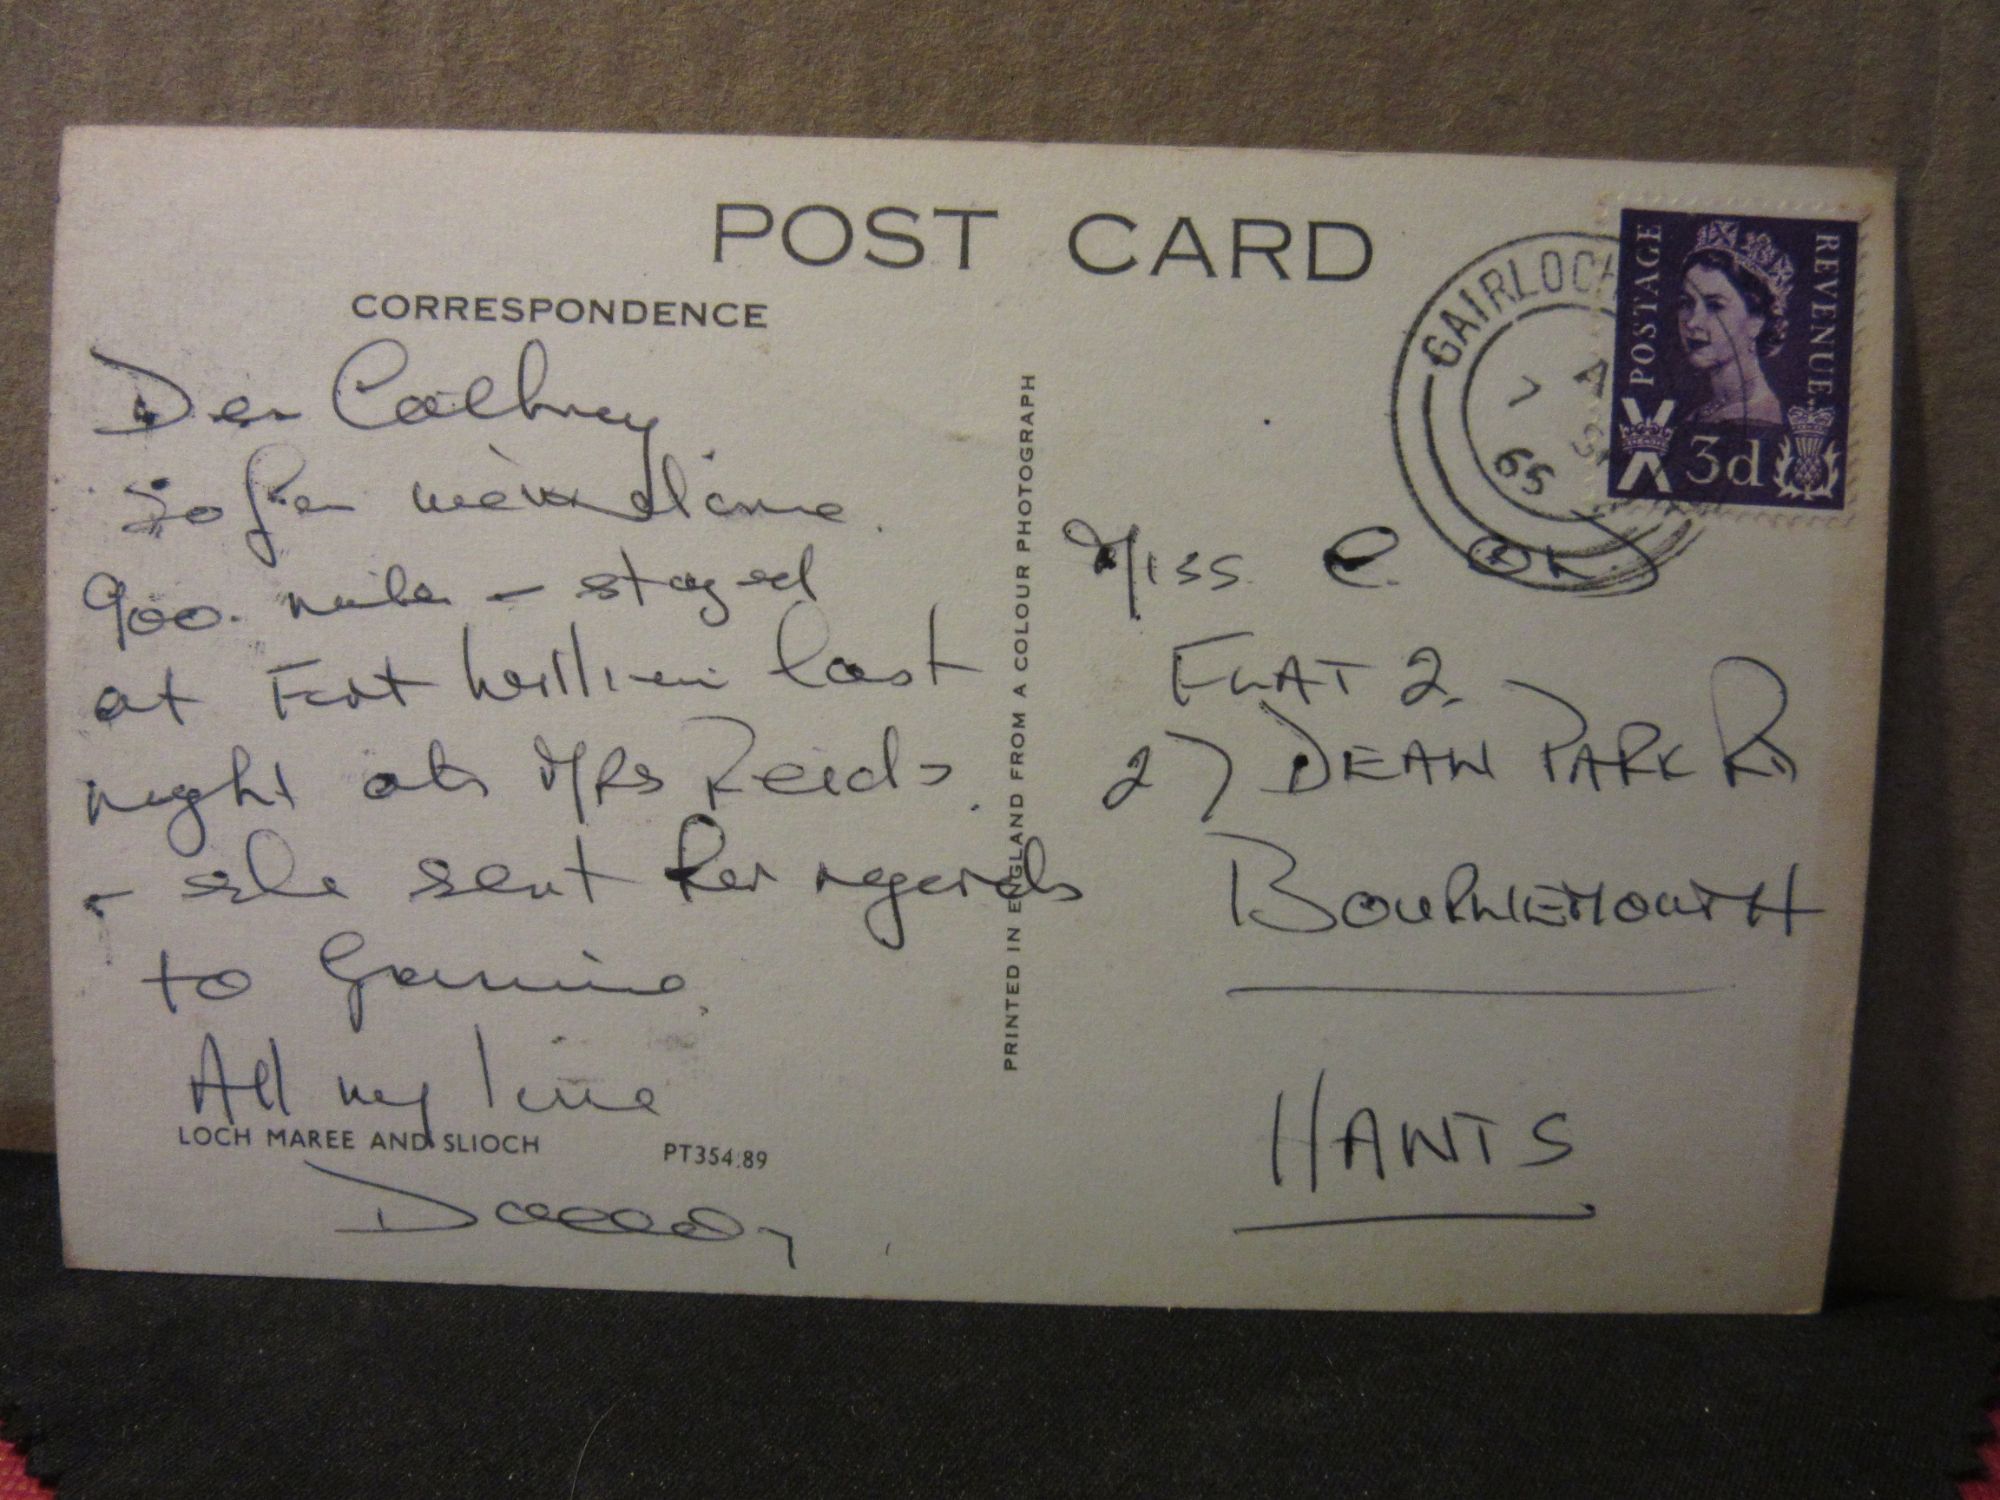 POST CARD
CORRESPONDENCE
Dear Cathrey
So far we've done
900. miles - stayed
at Fort William last
night at Mrs Reids.
- she sent her regards
to
All my love
LOCH MAREE AND SLIOCH PT354.89
Daddy
PRINTED IN ENGLAND FROM A COLOUR PHOTOGRAPH
GAIRLOCH
7
65
POSTAGE
REVENUE
3d
MISS C.
FLAT 2.
27 DEAN PARK RD
BOURNEMOUTH
HANTS